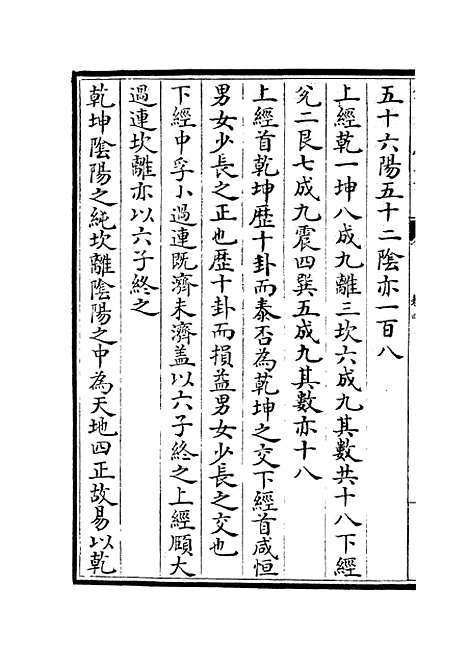 五十六陽五十二陰亦一百八
上經乾一坤八成九離三坎六成九其數共十八下經
兌二艮七成九震四巽五成九其數亦十八
上經首乾坤歷十卦而泰否為乾坤之交下經首咸恒
男女少長之正也歷十卦而損益男女少長之交也
下經中孚小過連既濟未濟蓋以六子終之上經頤大
過連坎離亦以六子終之
乾坤陰陽之純坎離陰陽之中為天地四正故易以乾